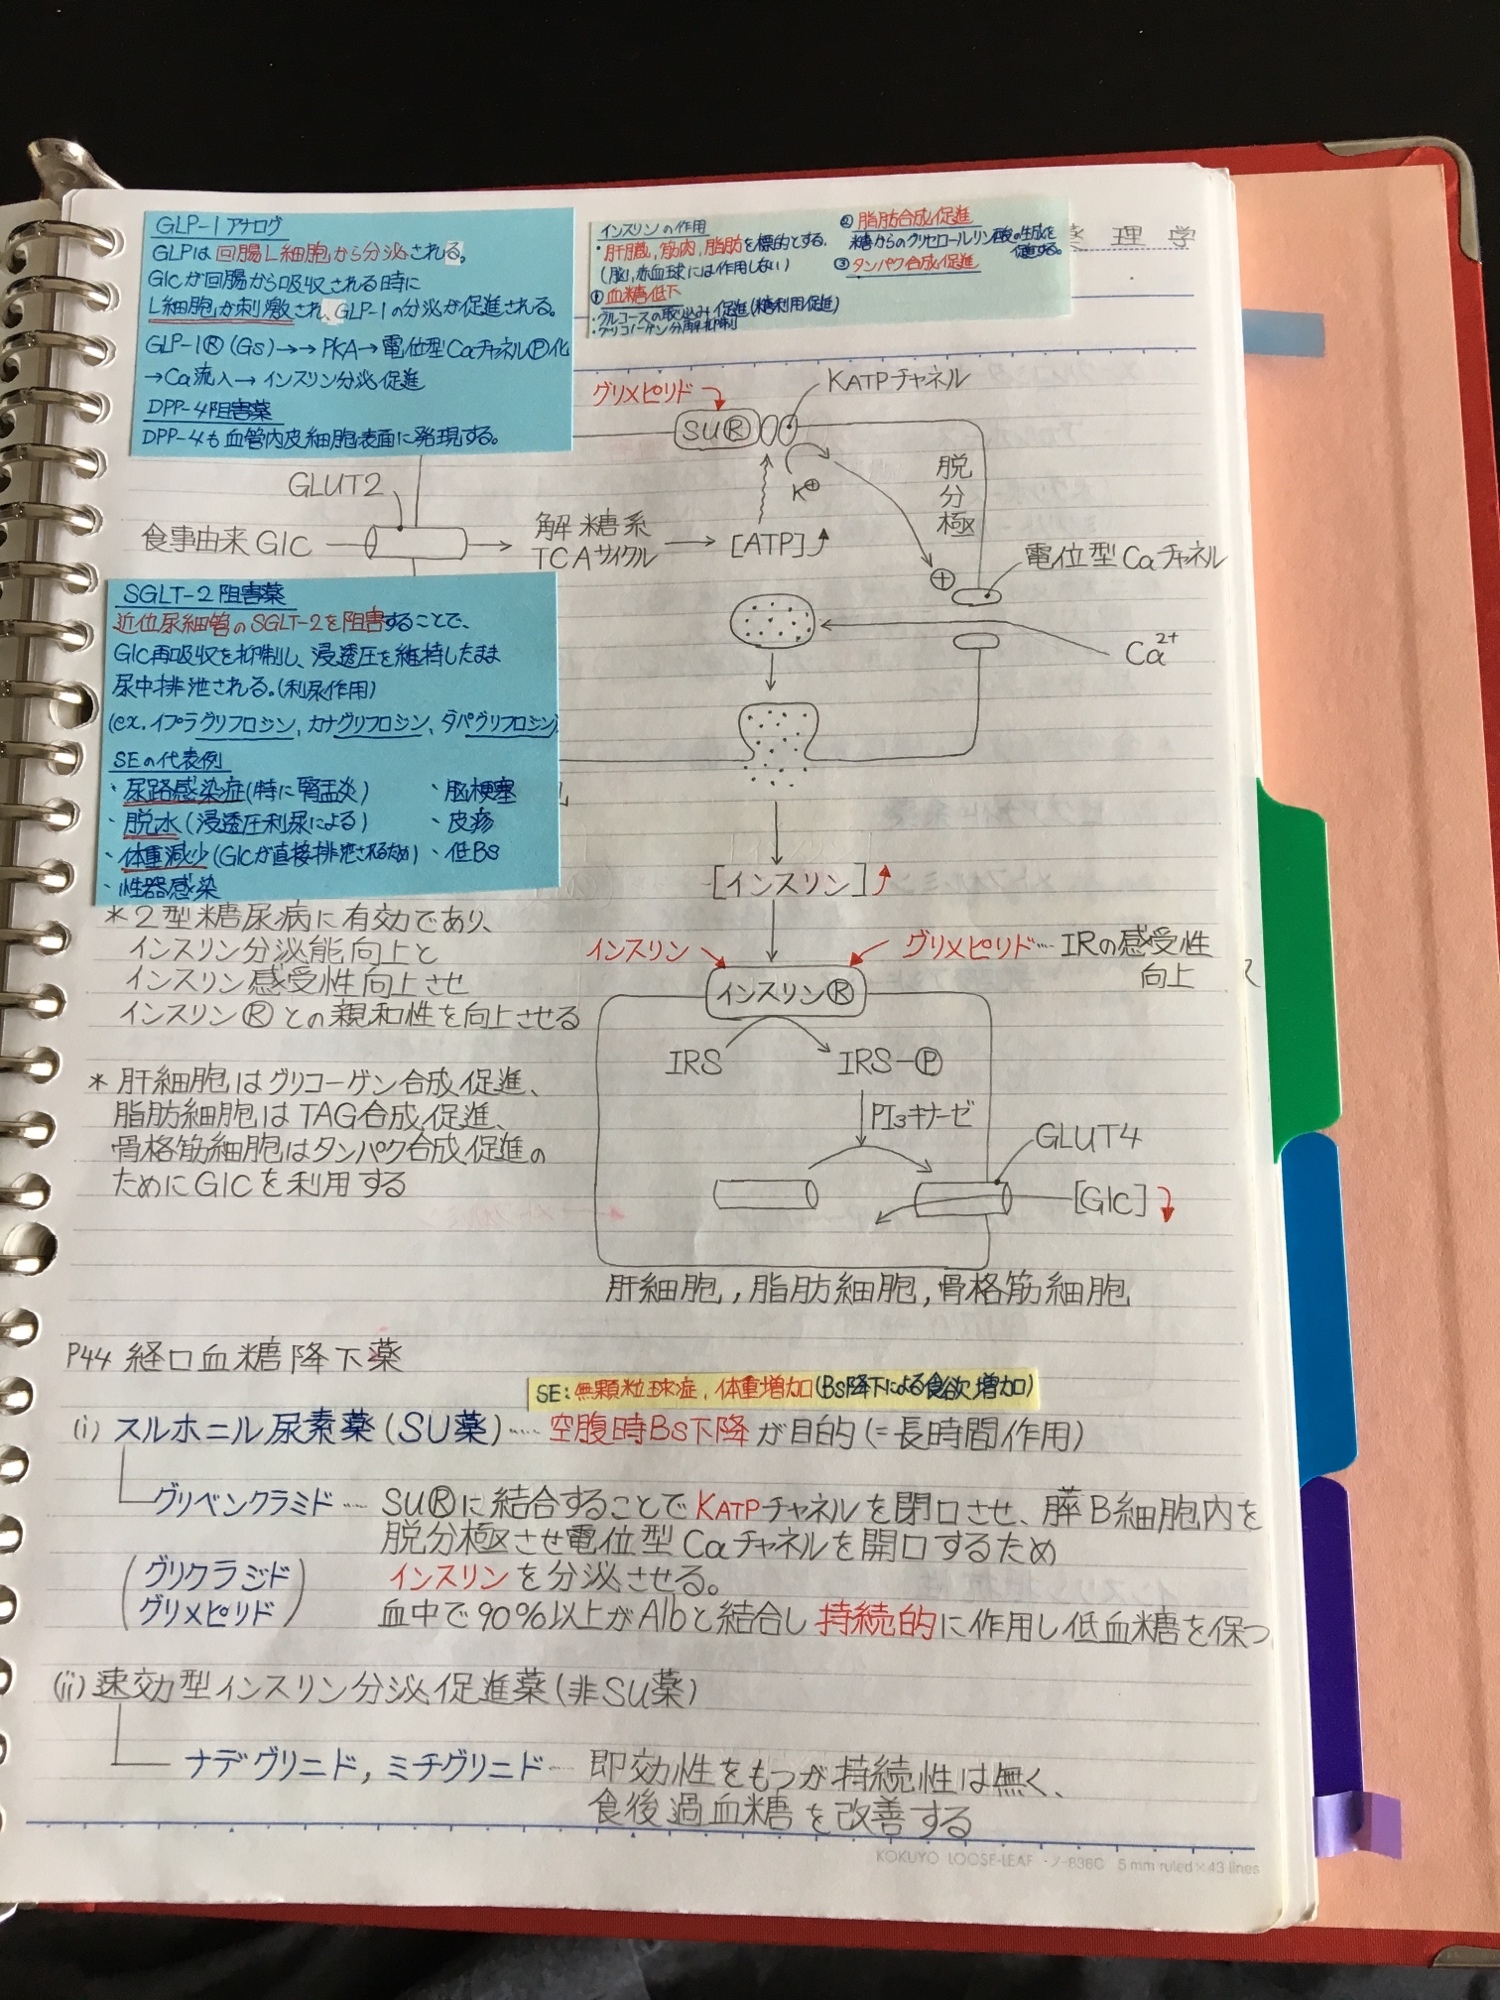 GLP-1 アナログ
GLPは回腸L細胞から分泌される。
Glcが回腸から吸収される時に
L細胞が刺激され、GLP-1の分泌が促進される。
GLP-1Ⓡ(Gs)→→PKA→電位型CaチャネルⓅ化
→Ca流入→インスリン分泌促進
DPP-4阻害薬
DPP-4も血管内皮細胞表面に発現する。
インスリンの作用
・肝臓、筋肉、脂肪を標的とする。
(脳、赤血球には作用しない)
① 血糖低下
・グルコースの取込み促進(糖利用促進)
・グリコーゲン分解抑制
② 脂肪合成促進
糖からのグリセロールリン酸の生成を
促進する。
③ タンパク合成促進
理学
グリメピリド
KATPチャネル
SUⓇ
K⊕
脱分極
GLUT2
食事由来Glc
解糖系
TCAサイクル
[ATP]
⊕
電位型Caチャネル
Ca2+
SGLT-2阻害薬
近位尿細管のSGLT-2を阻害することで、
Glc再吸収を抑制し、浸透圧を維持したまま
尿中排泄される。(利尿作用)
(ex. イプラグリフロジン、カナグリフロジン、ダパグリフロジン)
SEの代表例
・尿路感染症(特に腎盂炎)
・脱水(浸透圧利尿による)
・体重減少(Glcが直接排泄されるため)
・性器感染
・脳梗塞
・皮疹
・低BS
[インスリン]
インスリン
グリメピリド…IRの感受性
向上
インスリンⓇ
IRS
IRS-Ⓟ
PI3キナーゼ
GLUT4
[Glc]
肝細胞,脂肪細胞,骨格筋細胞
*2型糖尿病に有効であり、
インスリン分泌能向上と
インスリン感受性向上させ
インスリンⓇとの親和性を向上させる
*肝細胞はグリコーゲン合成促進、
脂肪細胞はTAG合成促進、
骨格筋細胞はタンパク合成促進の
ためにGlcを利用する
P44 経口血糖降下薬
SE:無顆粒球症,体重増加(BS降下による食欲増加)
(i) スルホニル尿素薬(SU薬)…空腹時BS下降が目的(=長時間作用)
グリベンクラミド…SUⓇに結合することでKATPチャネルを閉口させ、膵B細胞内を
脱分極させ電位型Caチャネルを開口するため
(グリクラジド
グリメピリド)
インスリンを分泌させる。
血中で90%以上がAlbと結合し持続的に作用し低血糖を保つ
(ii) 速効型インスリン分泌促進薬(非SU薬)
ナデグリニド,ミチグリニド…即効性をもつが持続性は無く、
食後過血糖を改善する
KOKUYO LOOSE-LEAF ノ-836C 5mm ruled×43 lines